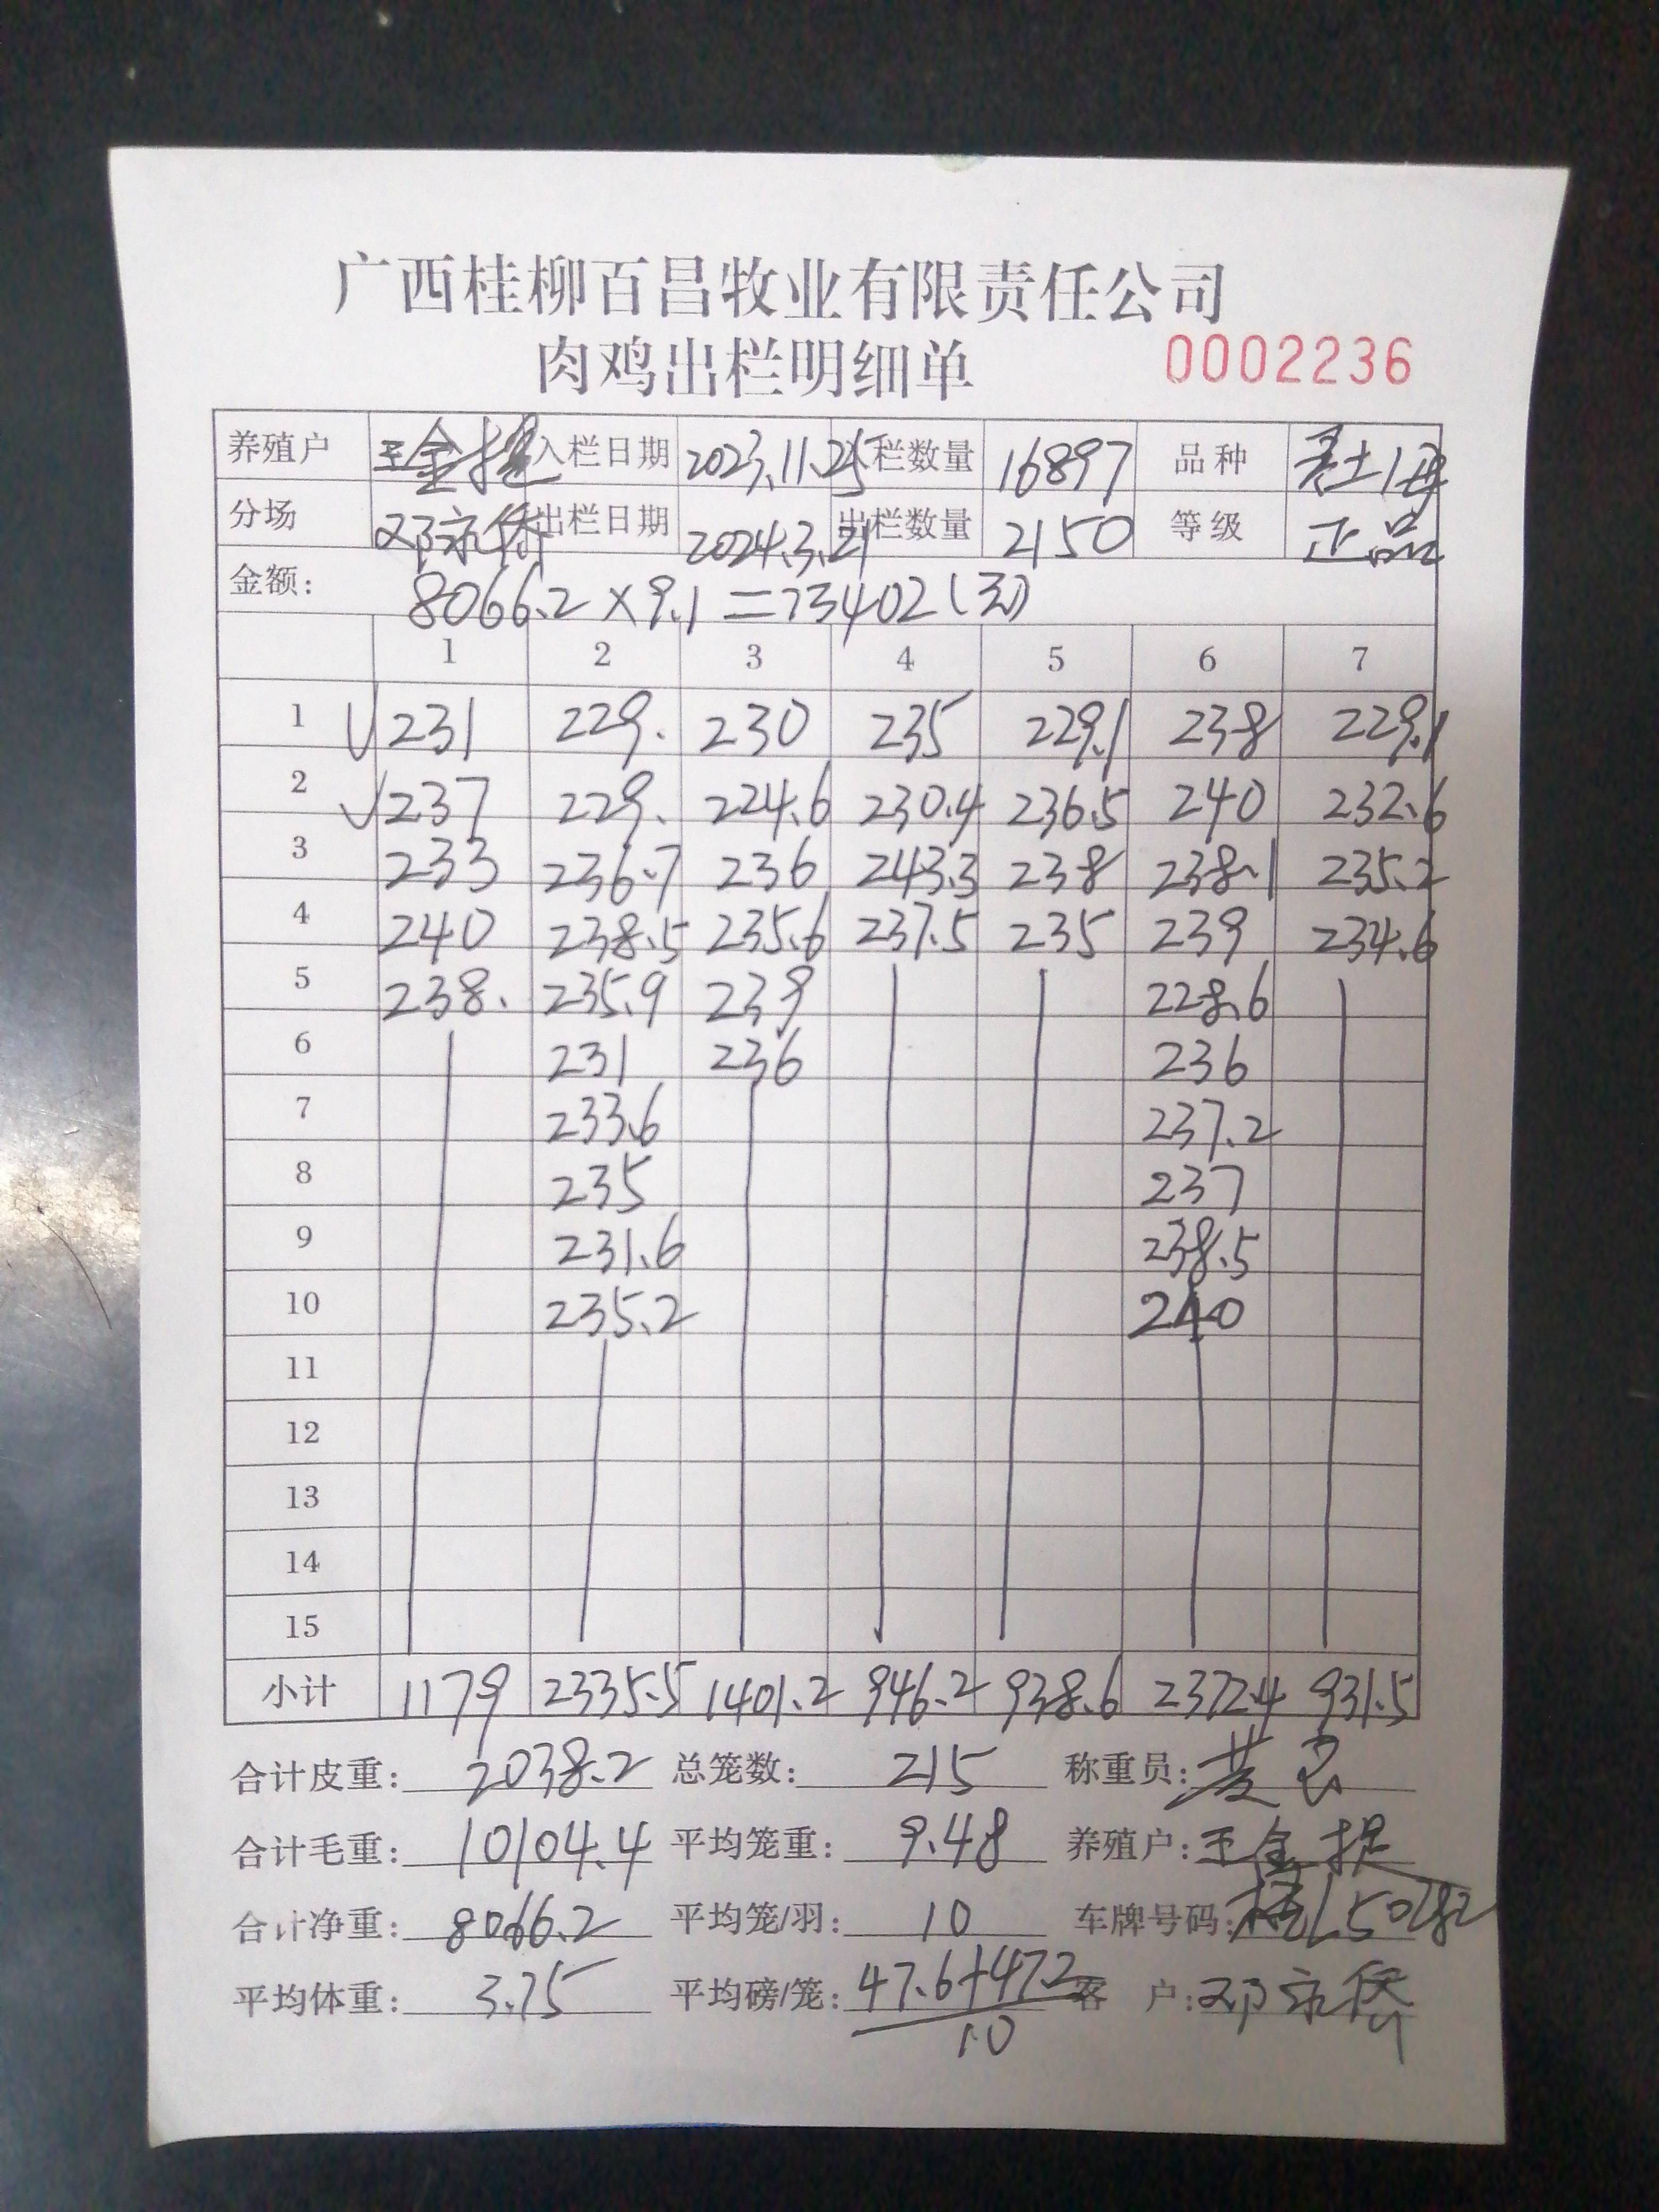 广西桂柳百昌牧业有限责任公司
肉鸡出栏明细单 0002236
养殖户 王金提 入栏日期 2023.11.25 入栏数量 16897 品种 土1母
分场 邓永 出栏日期 2024.3.21 出栏数量 2150 等级 正品
金额: 8066.2×9.1=73402(元)
1 2 3 4 5 6 7
1 √ 231 229. 230 235 229.1 238 229.1
2 √ 237 229. 224.6 230.4 236.5 240 232.6
3 233 236.7 236 243.3 238 238.1 235.2
4 240 238.5 235.6 237.5 235 239 234.6
5 238. 235.9 239 228.6
6 231 236 236
7 233.6 237.2
8 235 237
9 231.6 238.5
10 235.2 240
11
12
13
14
15
小计 1179 2335.5 1401.2 946.2 938.6 2372.4 931.5
合计皮重: 2038.2 总笼数: 215 称重员: 黄
合计毛重: 10104.4 平均笼重: 9.48 养殖户: 王金提
合计净重: 8066.2 平均笼/羽: 10 车牌号码: 桂L50282
平均体重: 3.75 平均磅/笼: 47.6+47.2 客 户: 邓永
10